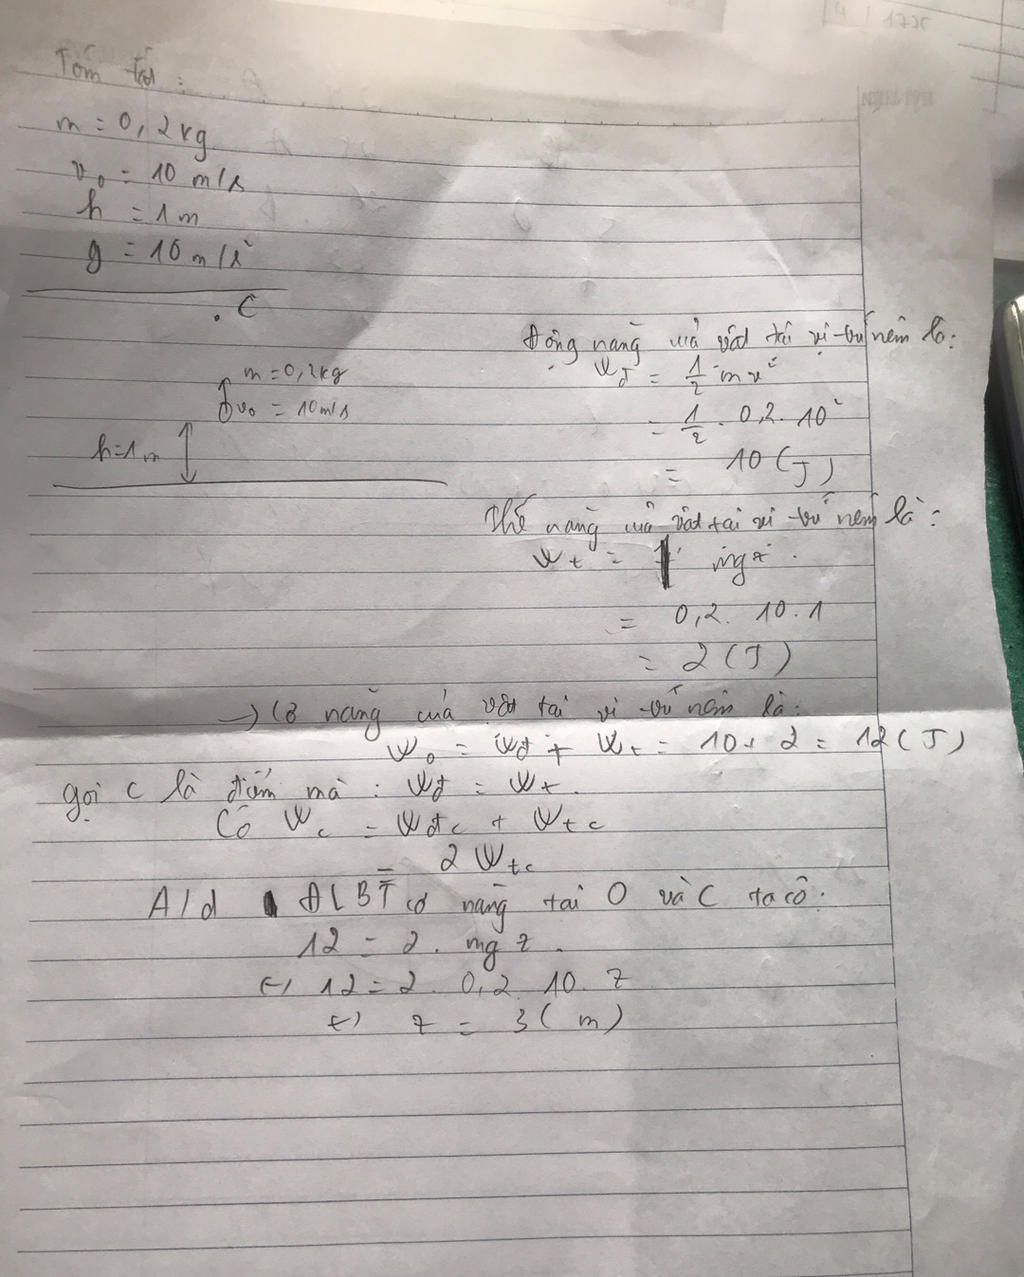 Tóm tắt :
m = 0,2kg
v₀ = 10 m/s
h = 1m
g = 10 m/s²
. C
m = 0,2kg
v₀ = 10m/s
h=1m
Động năng của vật tại vị trí ném là:
Wđ = 1/2 mv²
= 1/2 . 0,2. 10²
= 10 (J)
Thế năng của vật tại vị trí ném là:
Wt = mgz
= 0,2. 10. 1
= 2 (J)
→ Cơ năng của vật tại vị trí ném là:
W₀ = Wđ + Wt = 10 + 2 = 12 (J)
gọi C là điểm mà : Wđ = Wt.
Có Wc = Wđc + Wtc
= 2Wtc
A/d ĐLBT cơ năng tại O và C ta có:
12 = 2. mgz.
(-) 12 = 2. 0,2. 10. z
(-) z = 3 (m)